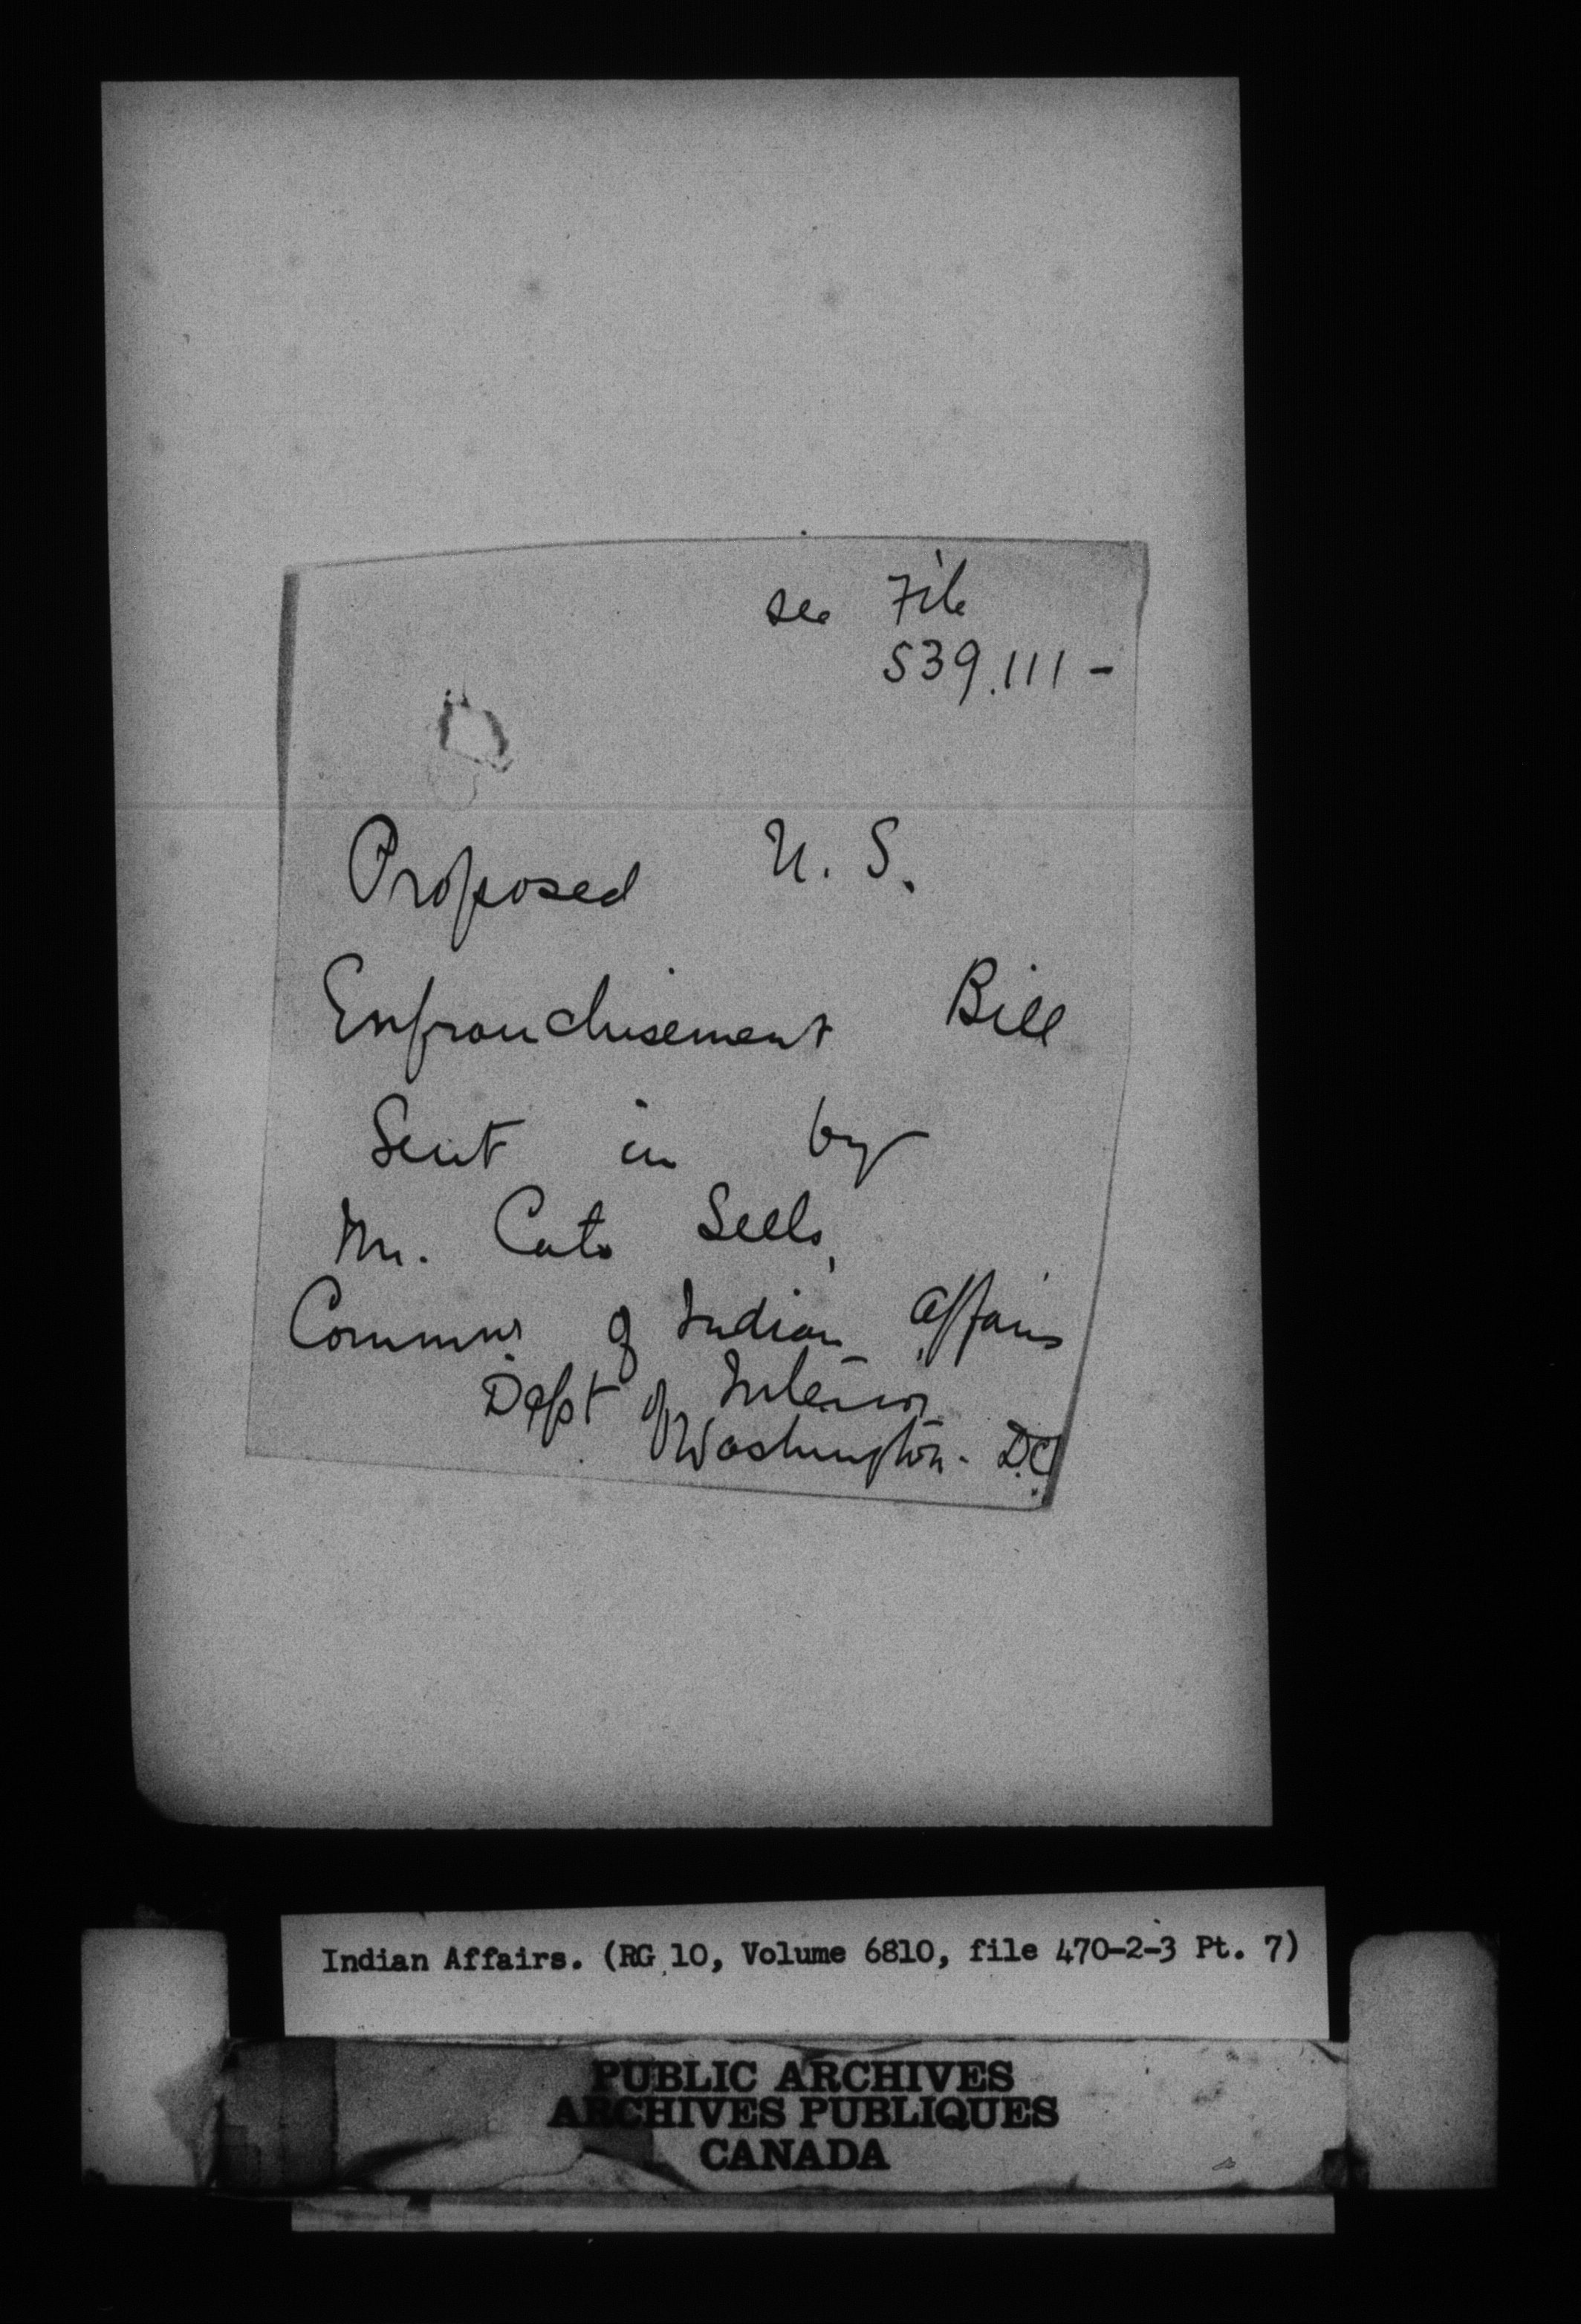 see File
539.111 -
Proposed U. S.
Enfranchisement Bill
Sent in by
Mr. Cato Sells,
Commnr of Indian Affairs
Dept of Interior
Washington - D.C.
Indian Affairs. (RG 10, Volume 6810, file 470-2-3 Pt. 7)
PUBLIC ARCHIVES
ARCHIVES PUBLIQUES
CANADA